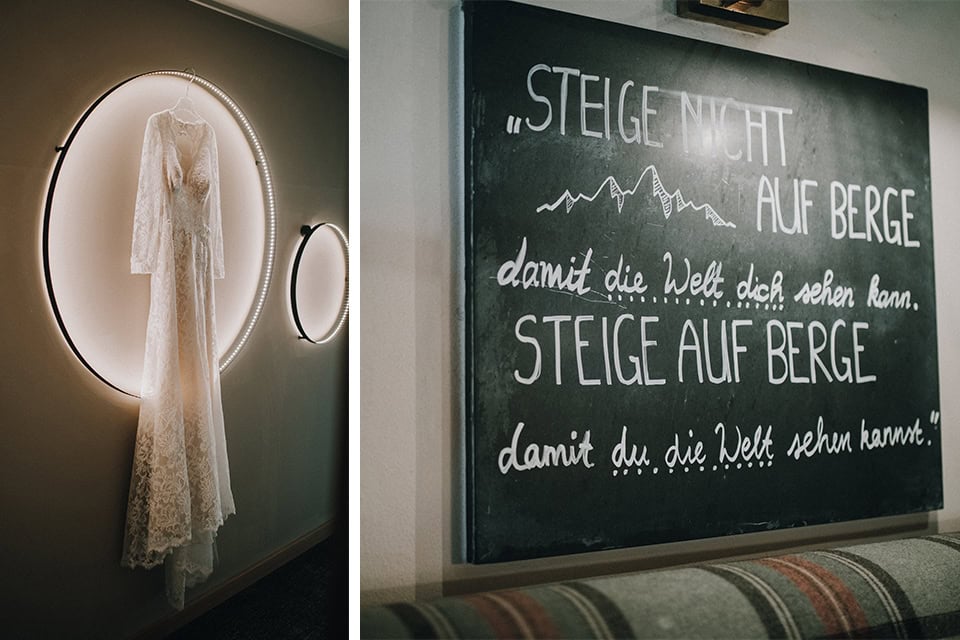 „STEIGE NICHT
AUF BERGE
damit die Welt dich sehen kann.
STEIGE AUF BERGE
damit du die Welt sehen kannst.“